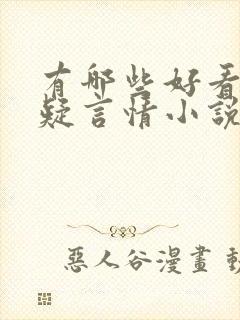 有哪些好看
疑言情小說
惡人谷漫畫 動